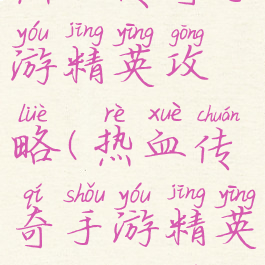 yóu jīng yīng gōng
游精英攻
lüè rè xuè chuán
略(热血传
qí shǒu yóu jīng yīng
奇手游精英